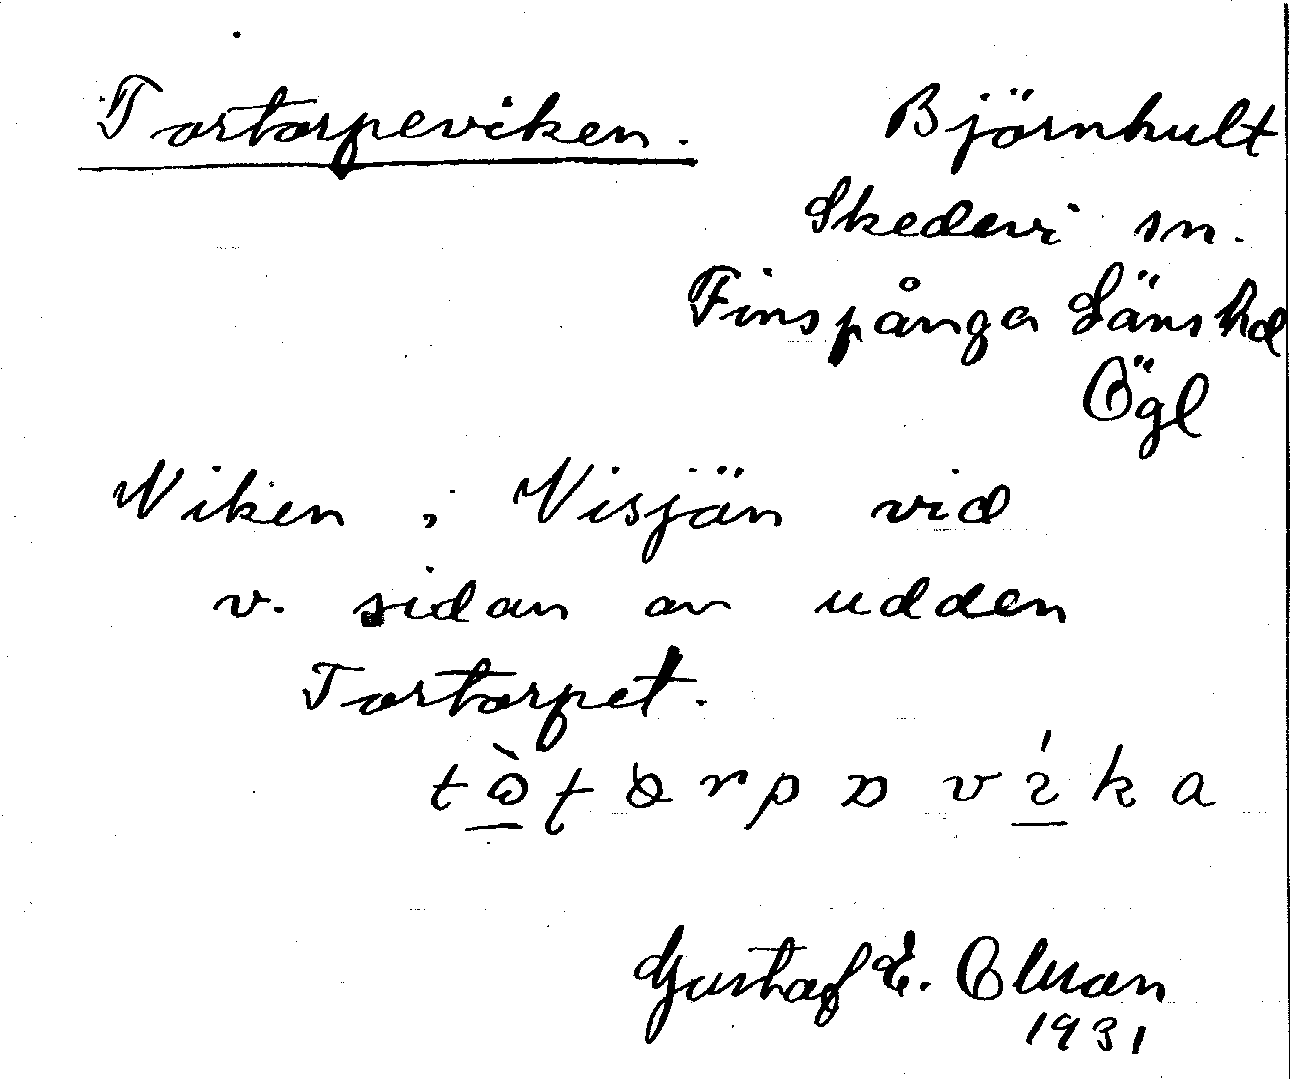 Tortorpeviken. Björnhult
Skedevi sn.
Finspånga Läns hd
Ögl
Viken i Visjön vid
v. sidan av udden
Tortorpet.
Gustaf E.
1931